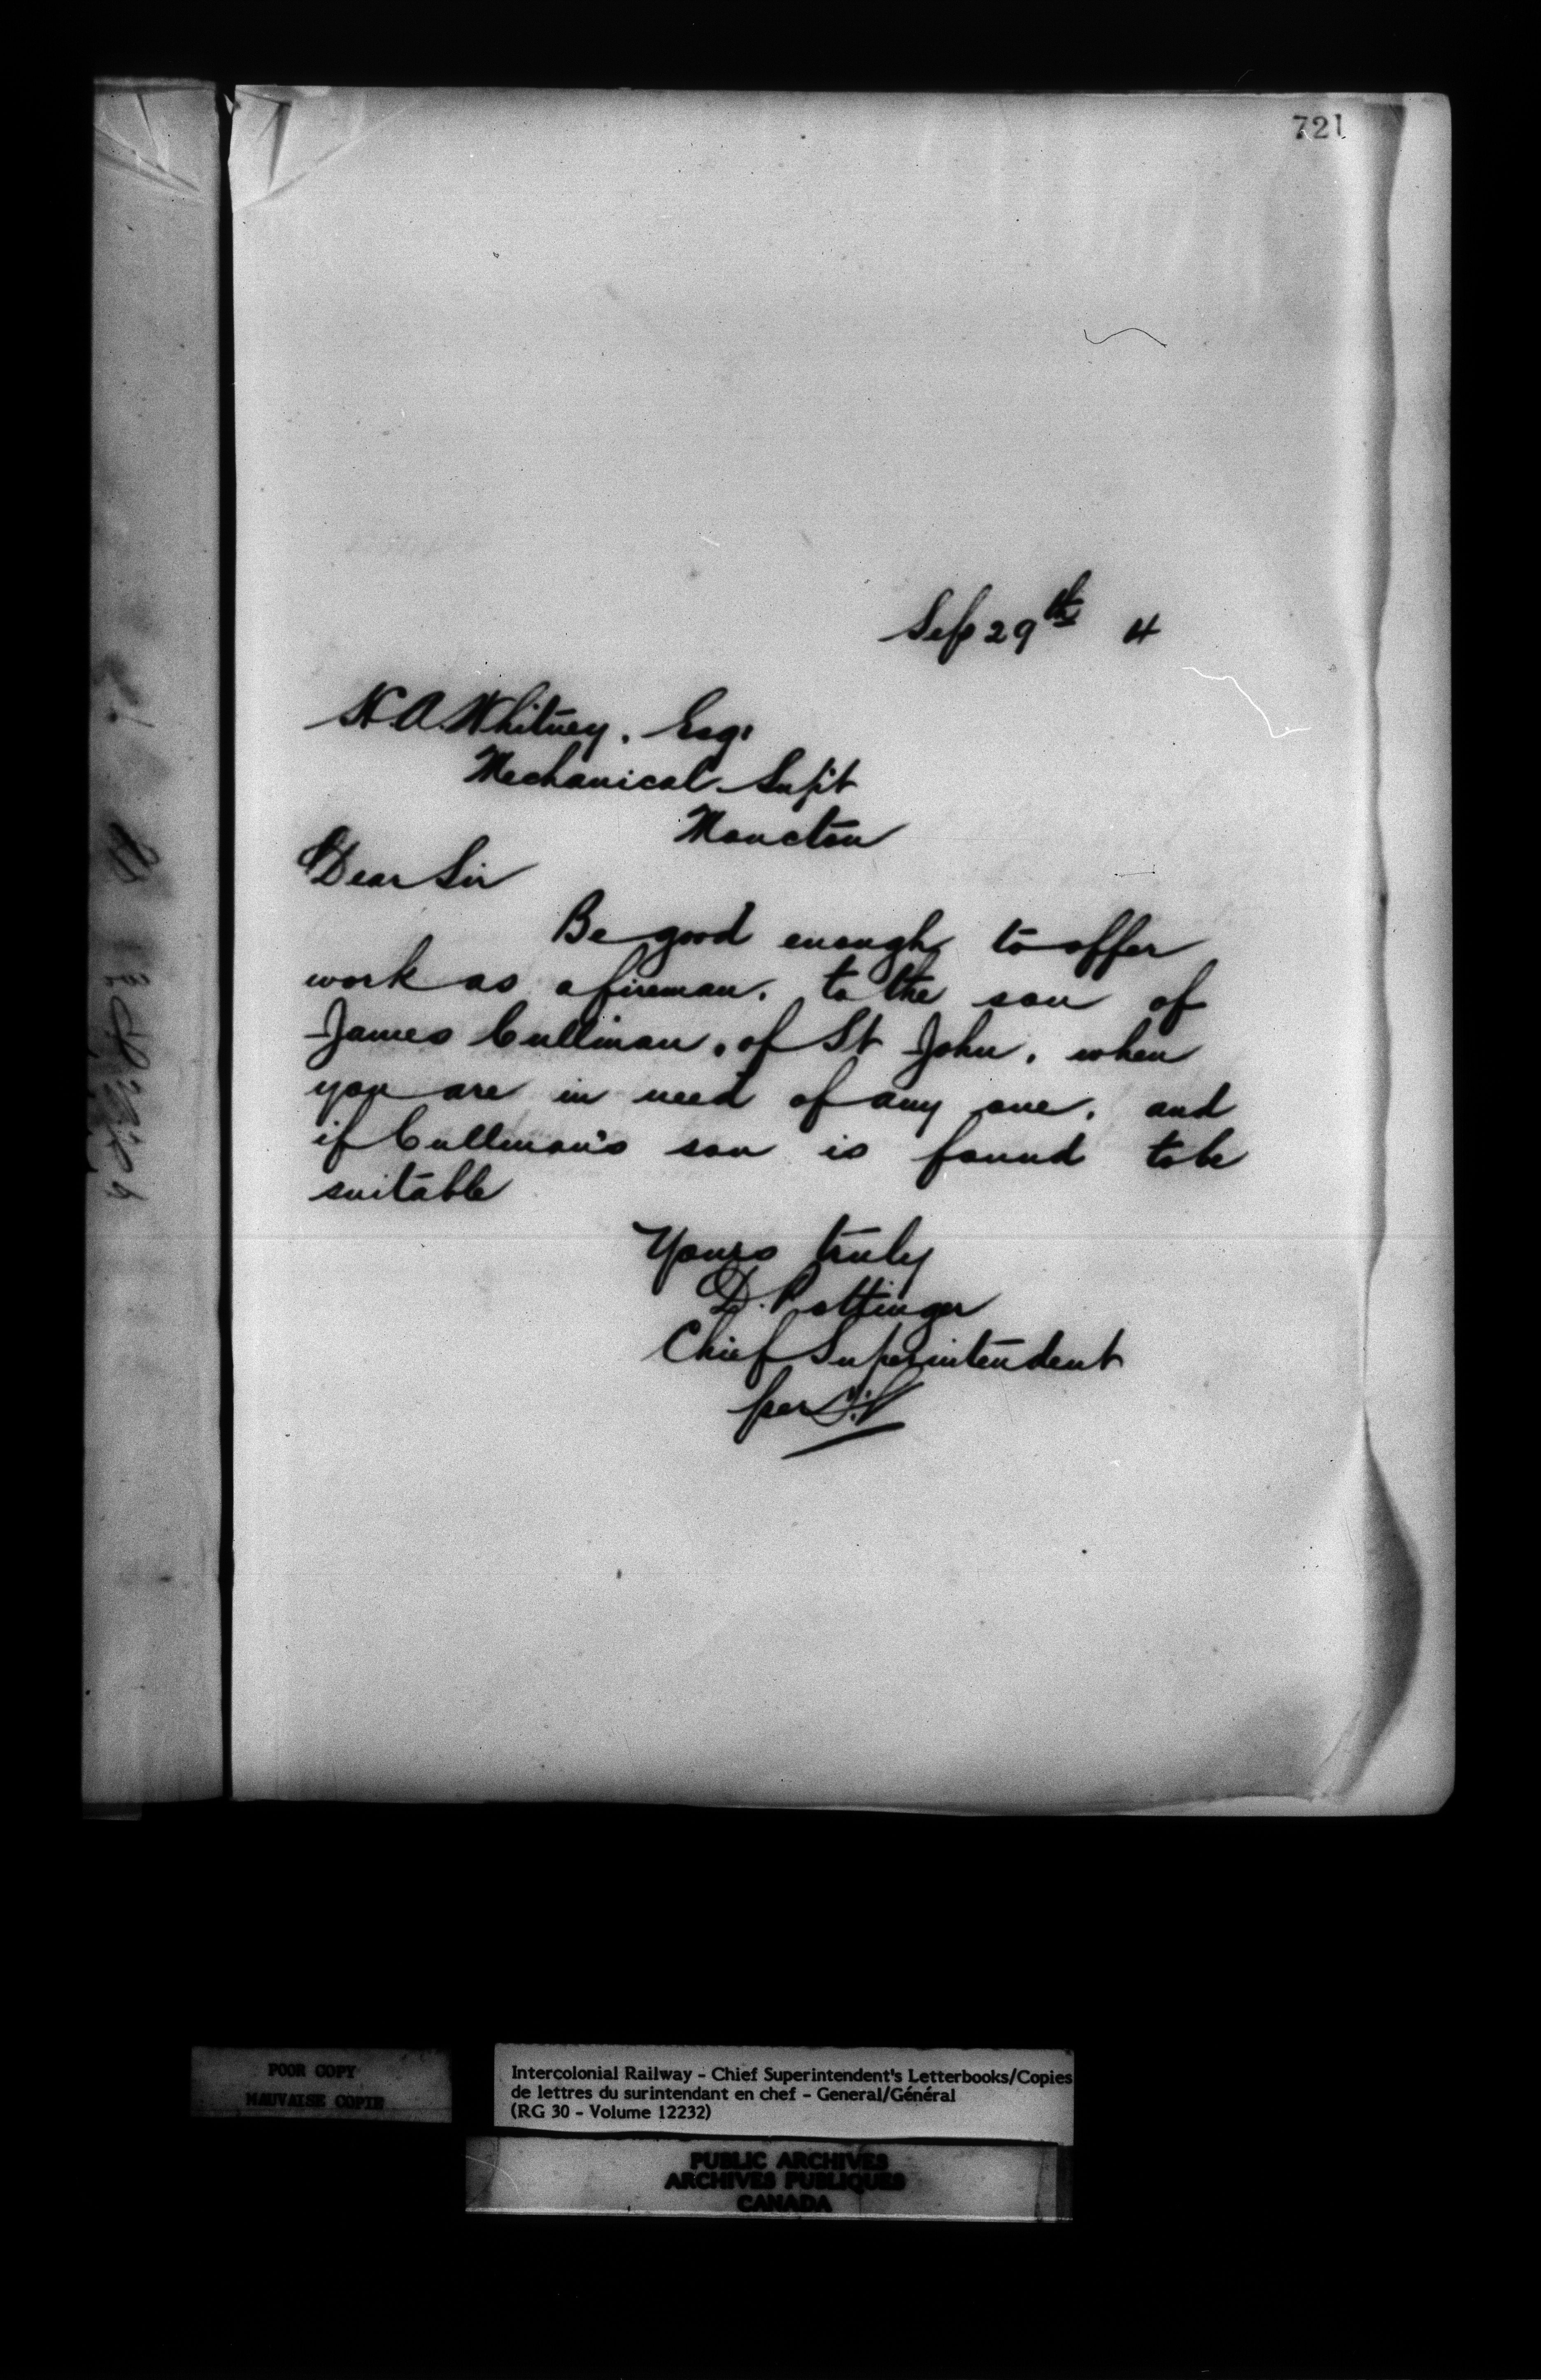 721
Sep 29th 4
H.A. Whitney. Esq:
Mechanical Supt
Moncton
Dear Sir
Be good enough to offer
work as a fireman. to the son of
James Cullinan, of St John. when
you are in need of any one. and
if Cullinan's son is found to be
suitable
Yours truly
D. Pottinger
Chief Superintendent
per
POOR COPY
MAUVAISE COPIE
Intercolonial Railway - Chief Superintendent's Letterbooks/Copies
de lettres du surintendant en chef - General/Général
(RG 30 - Volume 12232)
PUBLIC ARCHIVES
ARCHIVES PUBLIQUES
CANADA